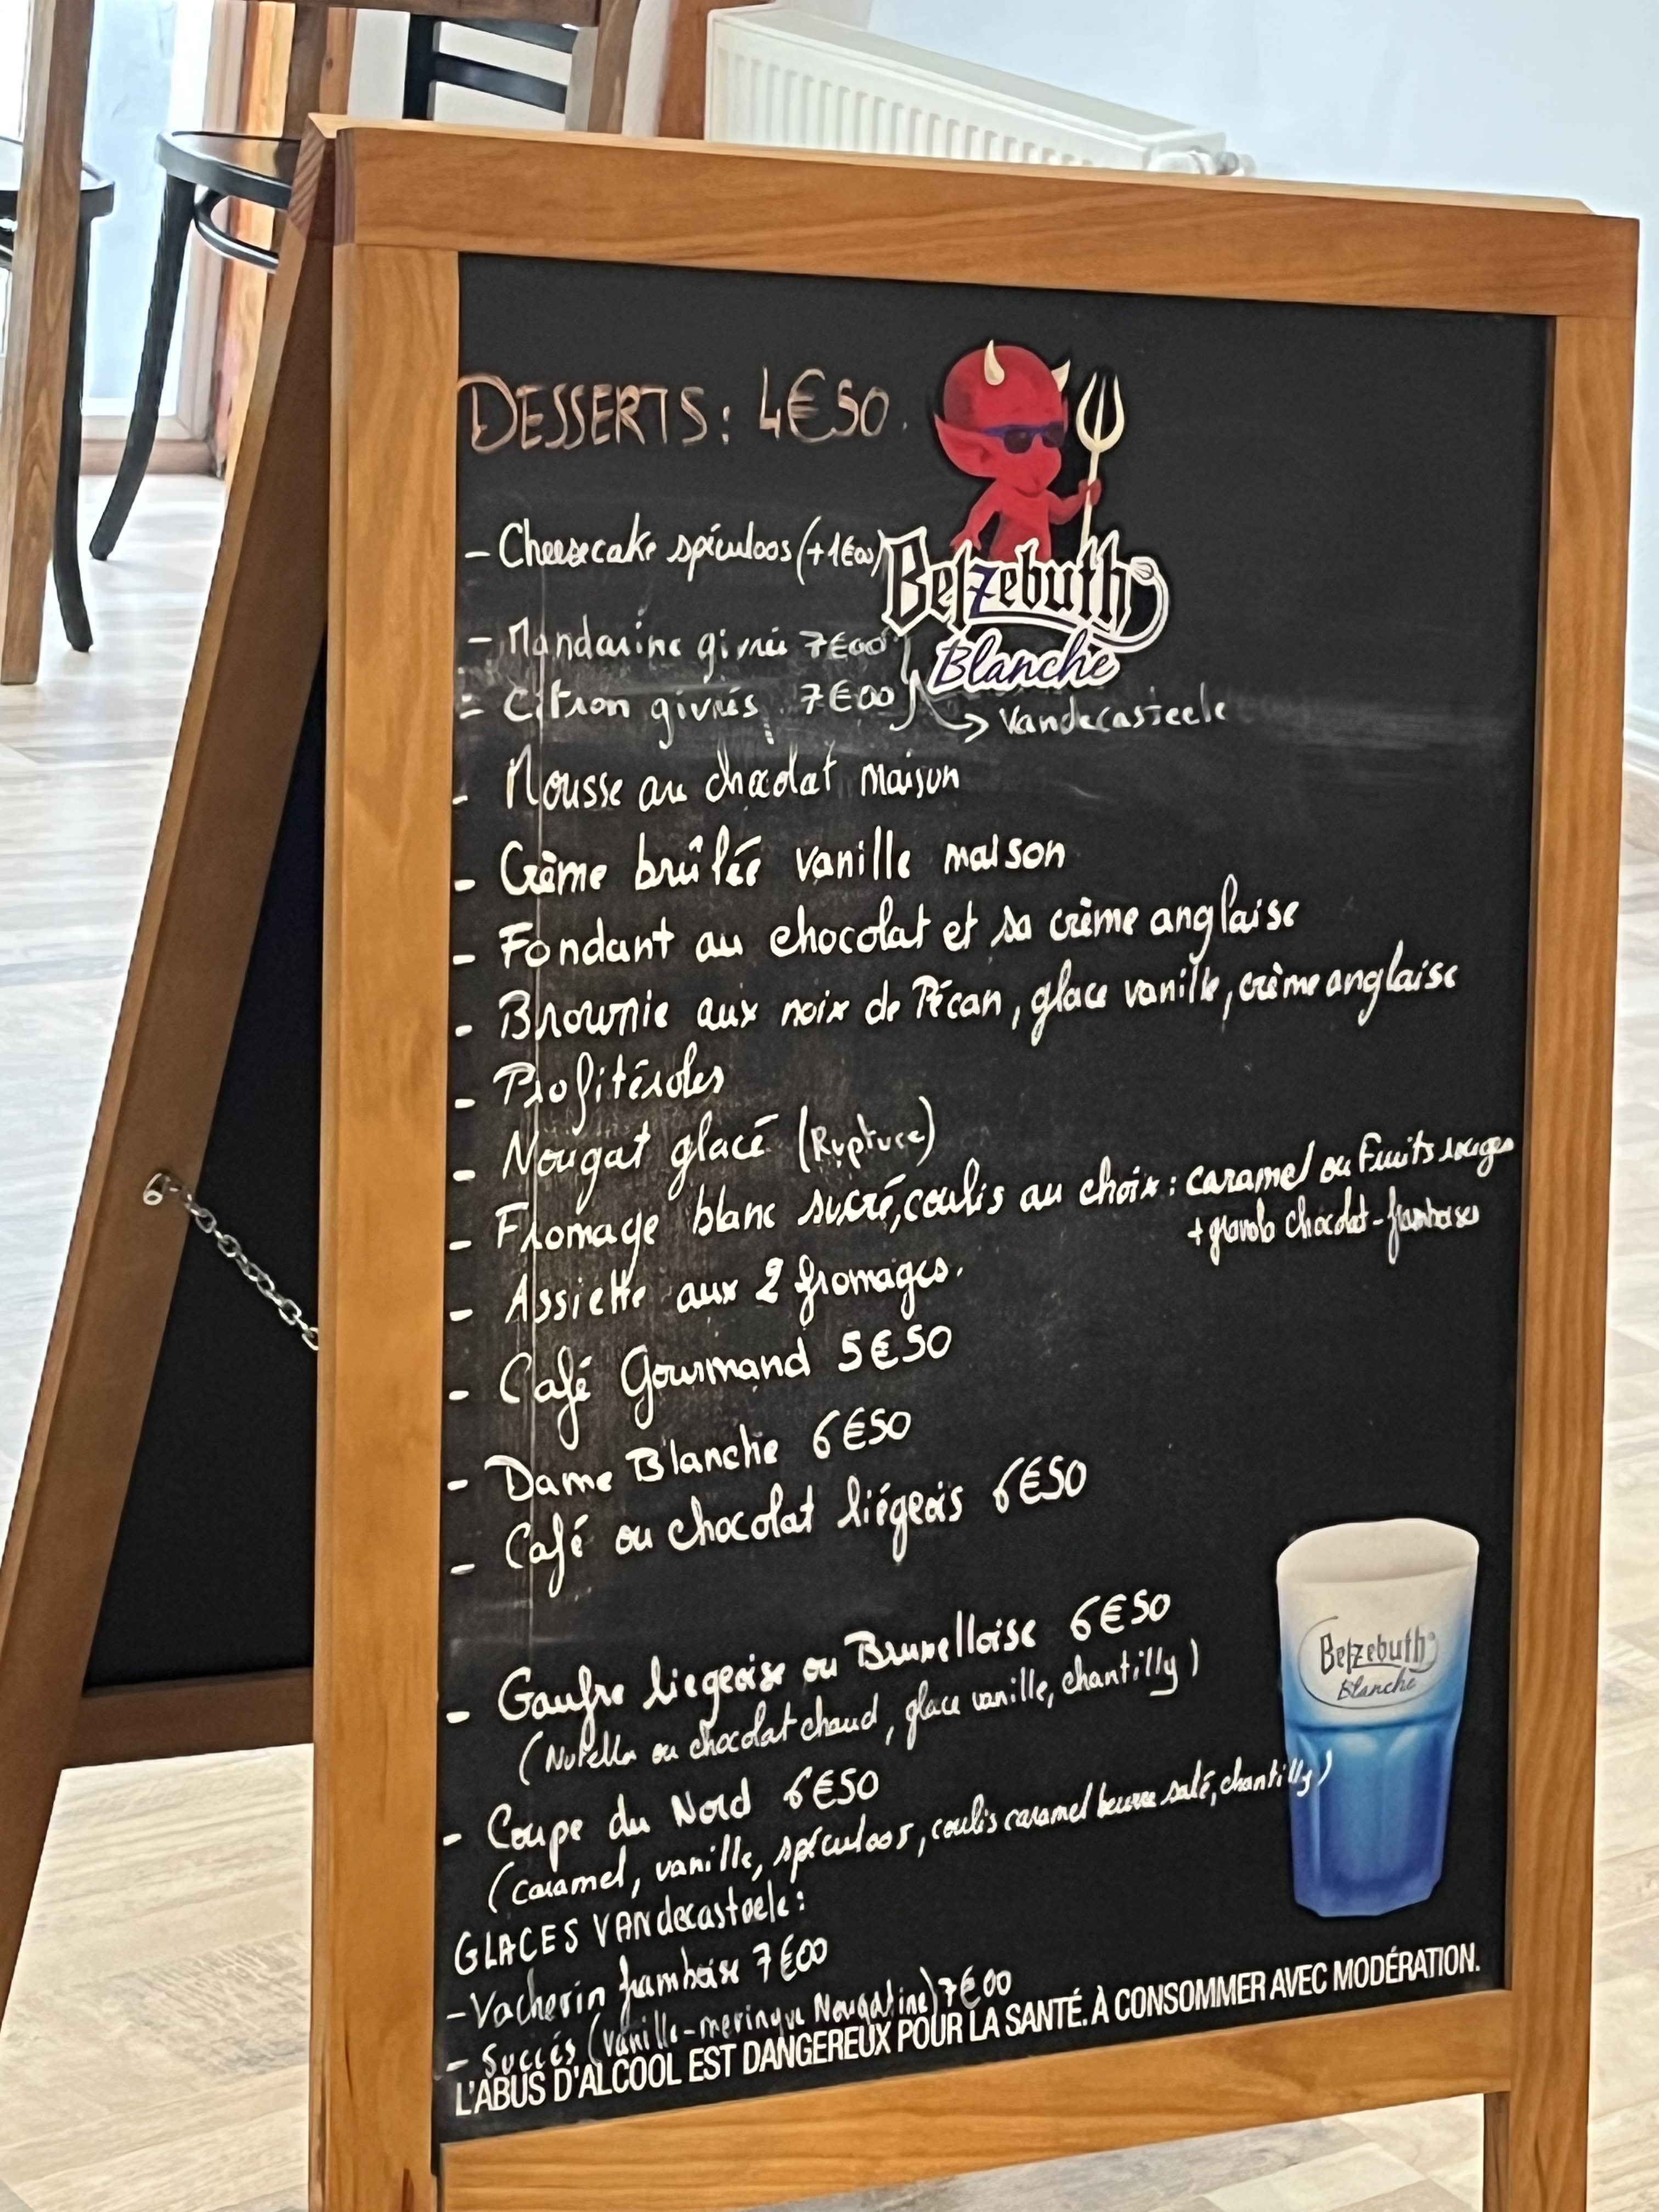 DESSERTS: 4€50.
- Cheesecake spéculoos (+1€00)
Belzebuth
Blanche
- Mandarine givrée 7€00
- Citron givrés 7€00
→ Vandecasteele
- Mousse au chocolat maison
- Crème brûlée vanille maison
- Fondant au chocolat et sa crème anglaise
- Brownie aux noix de Pécan, glace vanille, crème anglaise
- Profitéroles
- Nougat glacé (Rupture)
- Fromage blanc sucré, coulis au choix : caramel ou Fruits rouges
+ granola chocolat-framboises
- Assiette aux 2 fromages.
- Café Gourmand 5€50
- Dame Blanche 6€50
- Café ou chocolat liégeois 6€50
- Gaufre liegeoise ou Bruxelloise 6€50
(Nutella ou chocolat chaud, glace vanille, chantilly)
- Coupe du Nord 6€50
(caramel, vanille, spéculoos, coulis caramel beurre salé, chantilly)
Belzebuth
Blanche
GLACES VANdecasteele :
- Vacherin framboise 7€00
- Succés (vanille-meringue Nougatine) 7€00
L'ABUS D'ALCOOL EST DANGEREUX POUR LA SANTÉ. À CONSOMMER AVEC MODÉRATION.